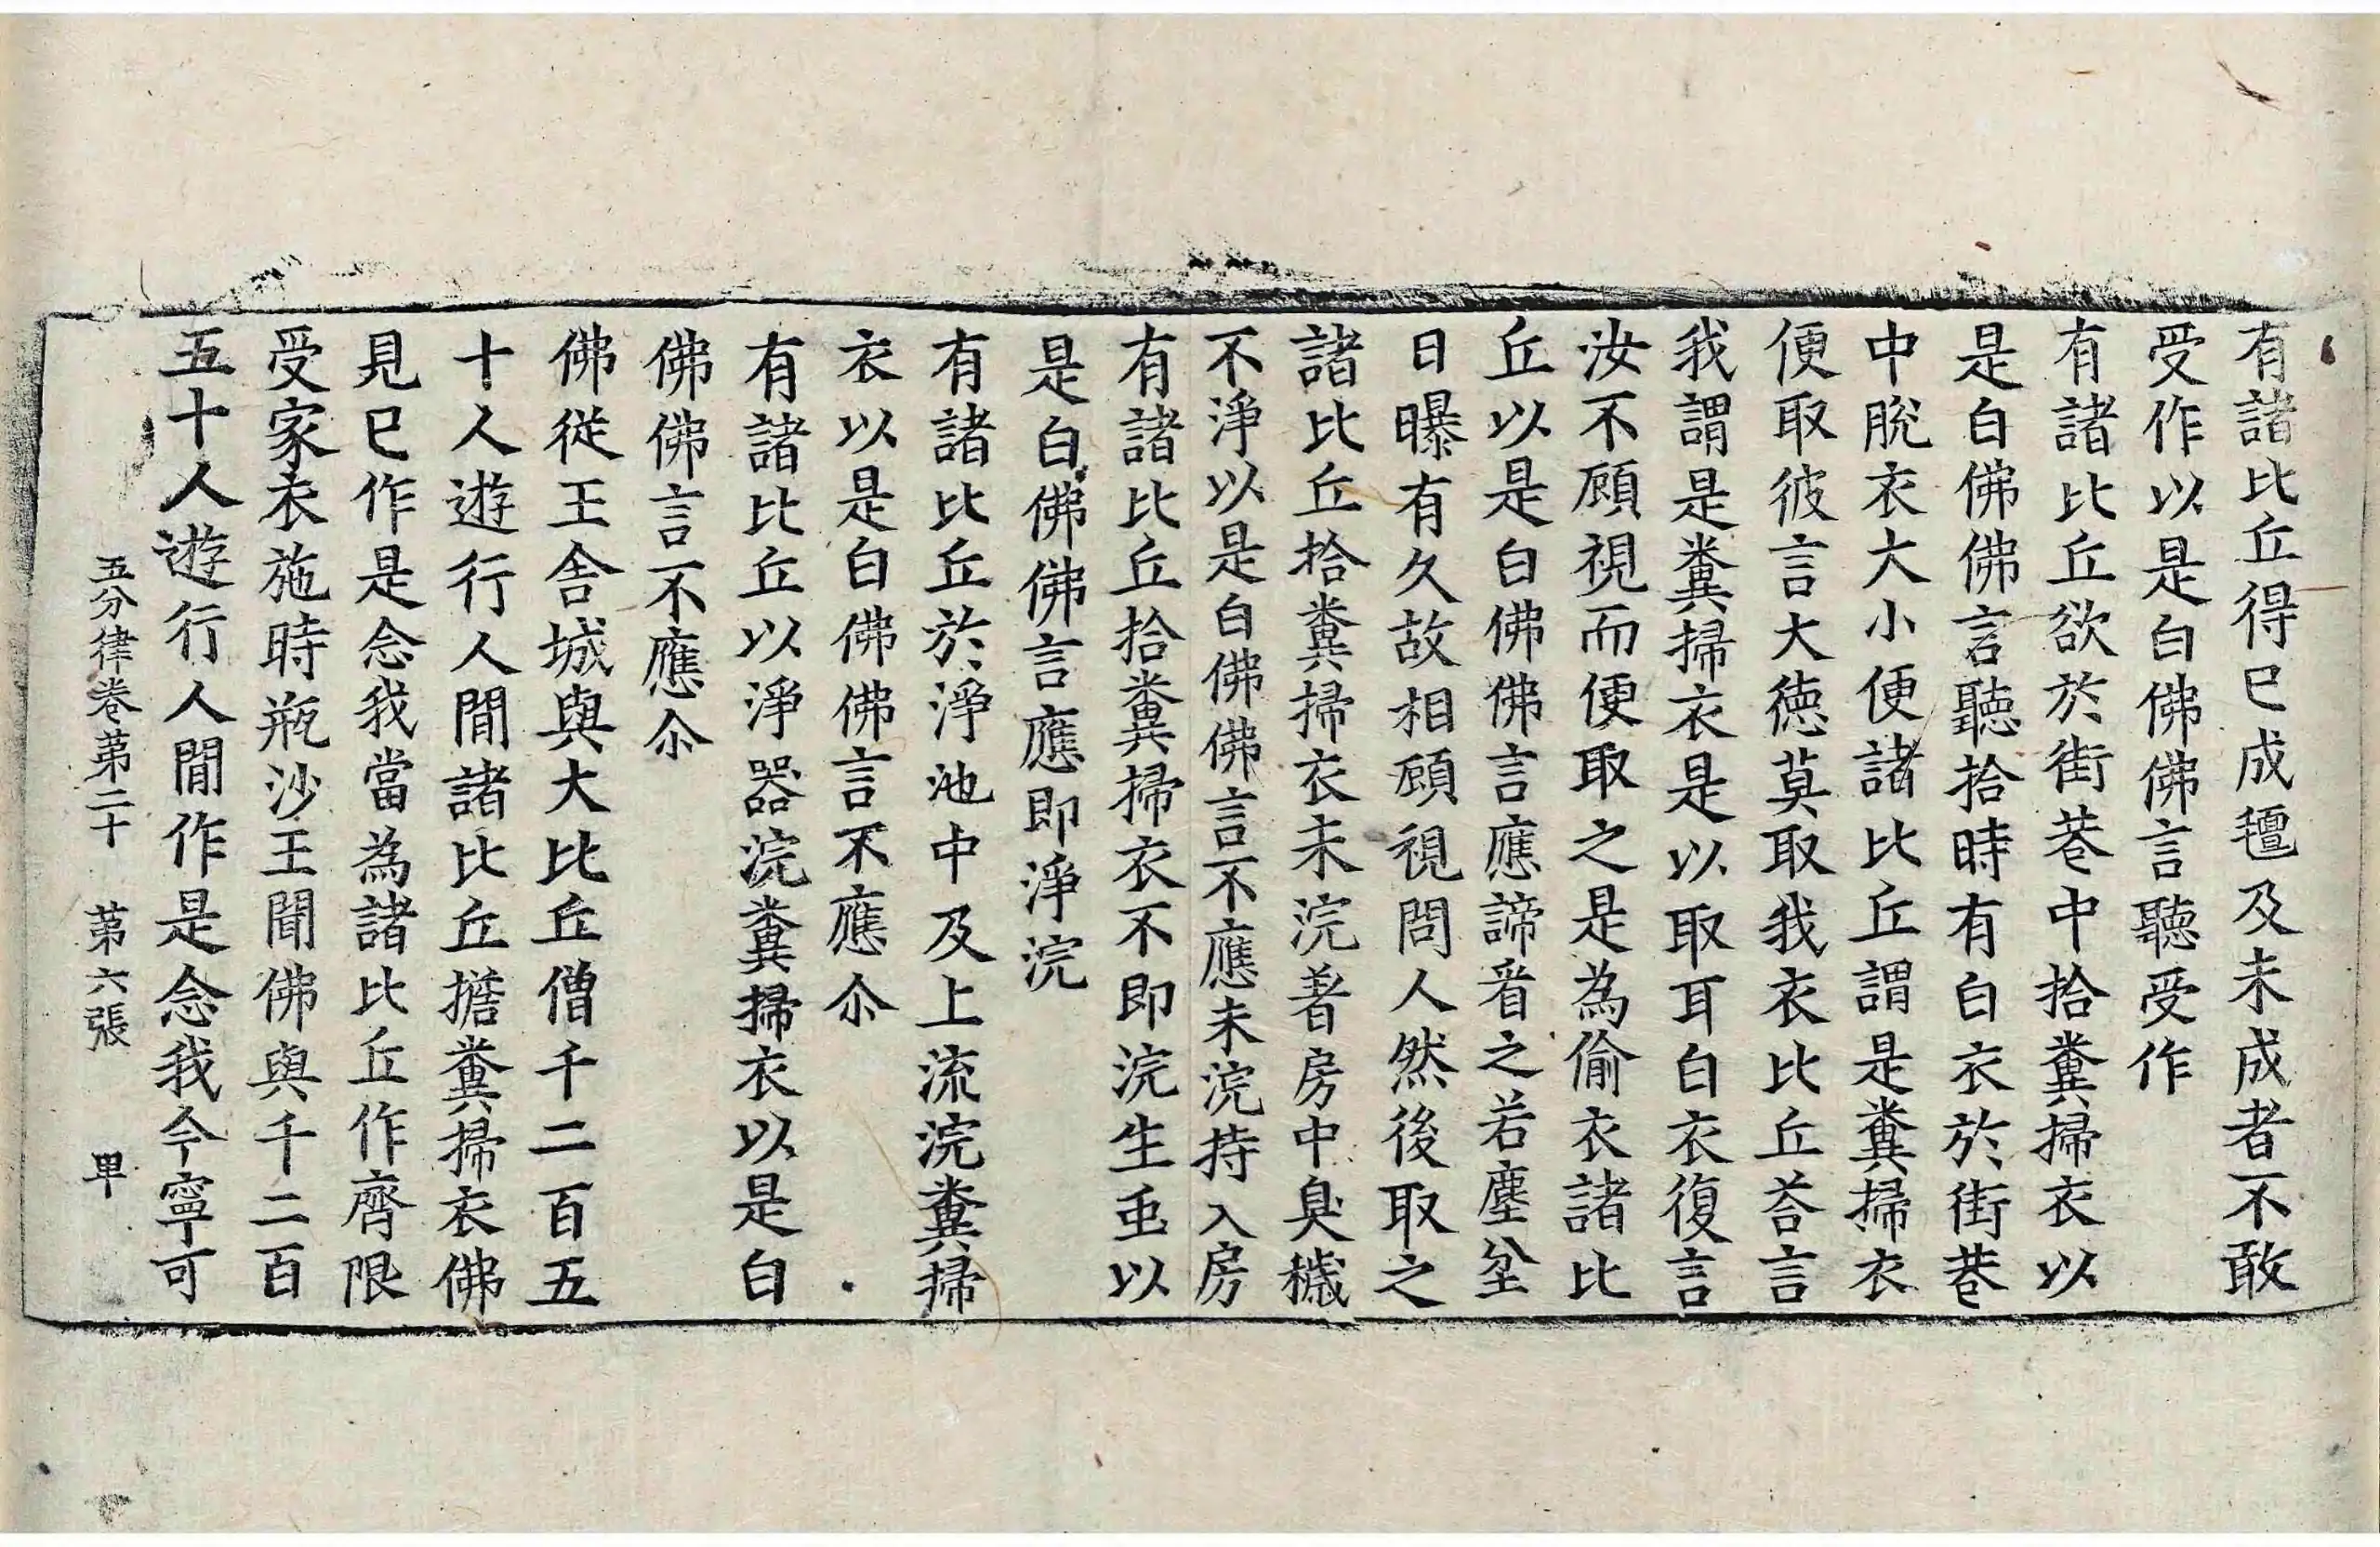 有諸比丘得已成氊及未成者不敢
受作以是白佛佛言聽受作
有諸比丘欲於街巷中拾糞掃衣以
是白佛佛言聽拾時有白衣於街巷
中脫衣大小便諸比丘謂是糞掃衣
便取彼言大德莫取我衣比丘荅言
我謂是糞掃衣是以取耳白衣復言
汝不顧視而便取之是為偷衣諸比
丘以是白佛佛言應諦看之若塵坌
日曝有久故相顧視問人然後取之
諸比丘拾糞掃衣未浣著房中臭穢
不淨以是白佛佛言不應未浣持入房
有諸比丘拾糞掃衣不即浣生虫以
是白佛佛言應即淨浣
有諸比丘於淨池中及上流浣糞掃
衣以是白佛佛言不應尒
有諸比丘以淨器浣糞掃衣以是白
佛佛言不應尒
佛從王舍城與大比丘僧千二百五
十人遊行人間諸比丘擔糞掃衣佛
見已作是念我當為諸比丘作齊限
受家衣施時瓶沙王聞佛與千二百
五十人遊行人間作是念我今寧可
五分律卷第二十　第六張